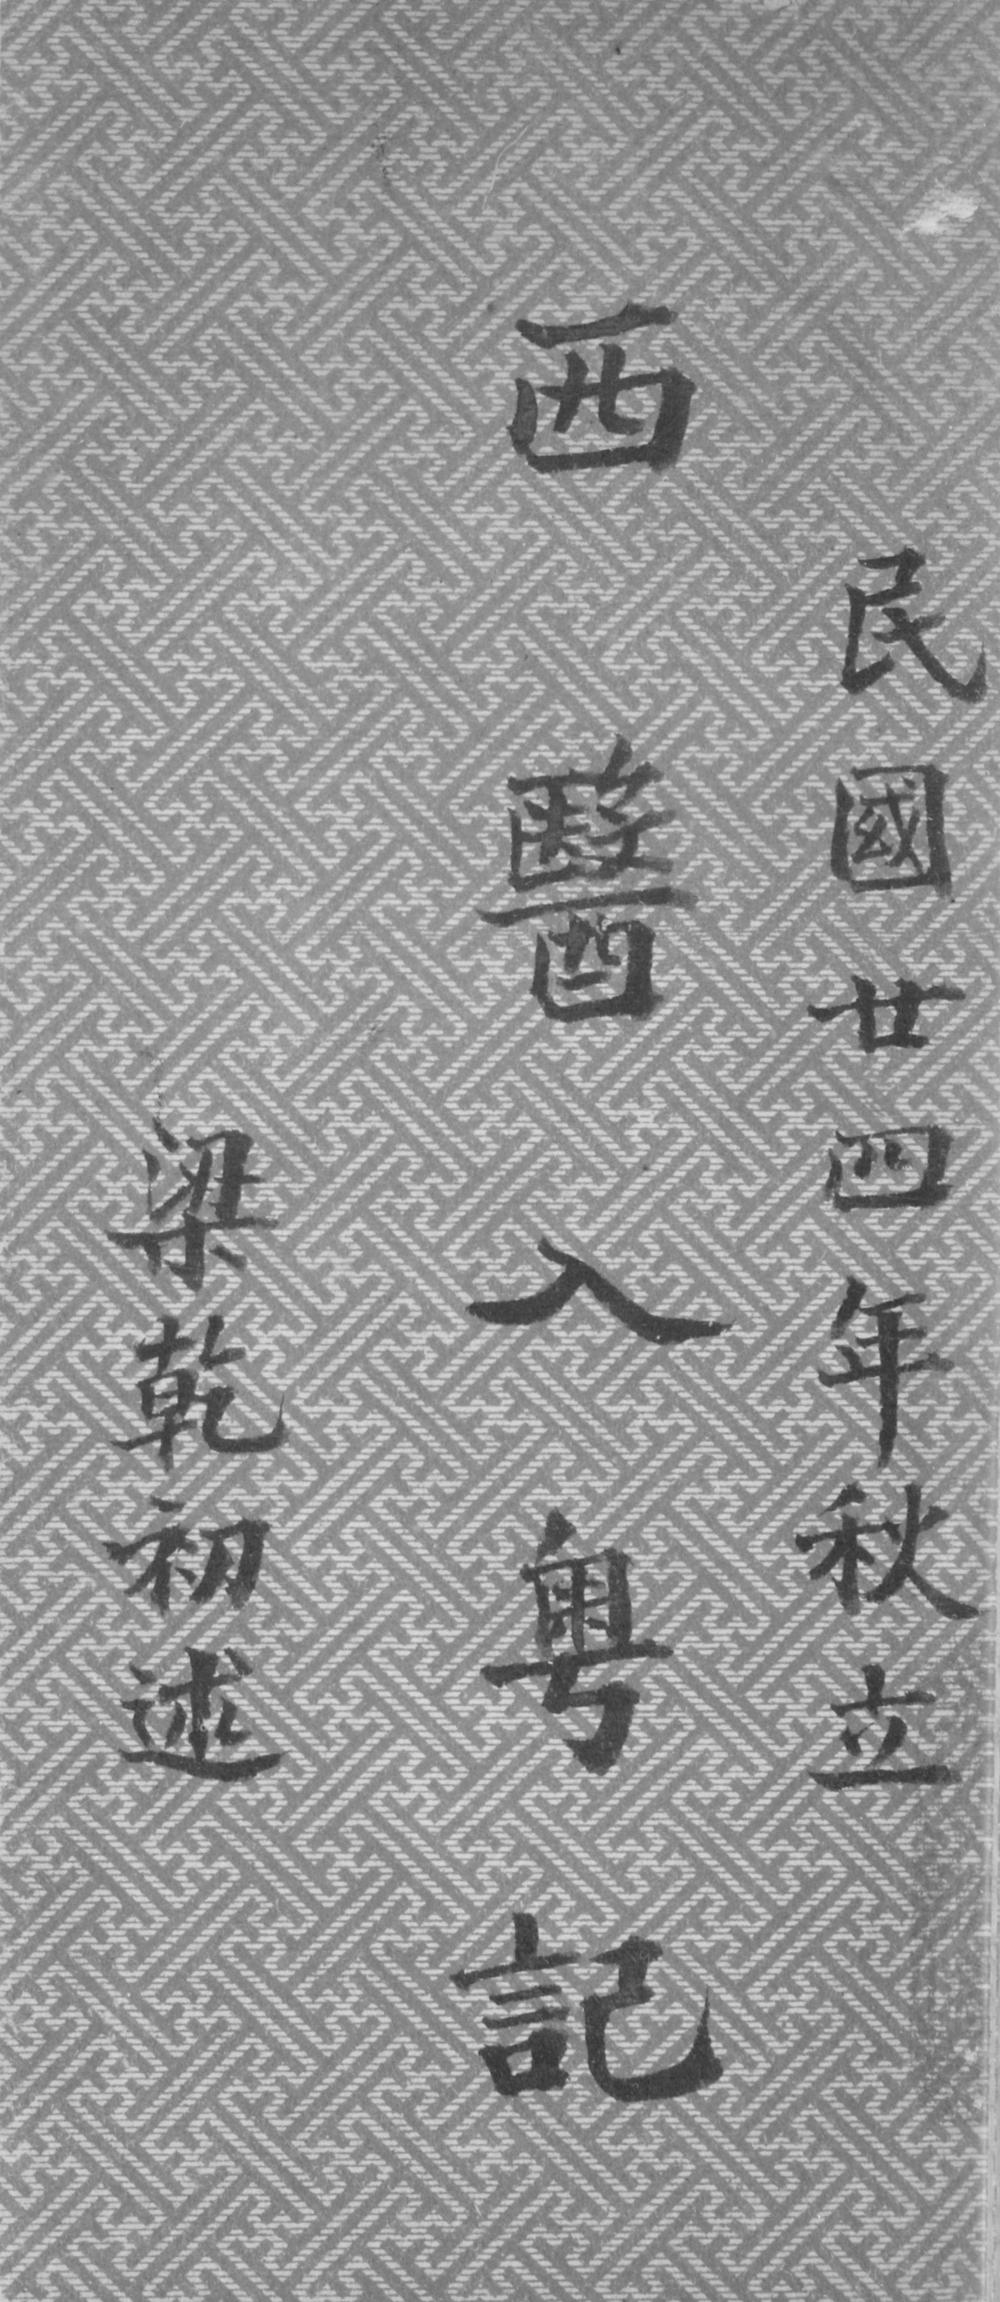 民國廿四年秋立
西醫入粵記
梁乾初述